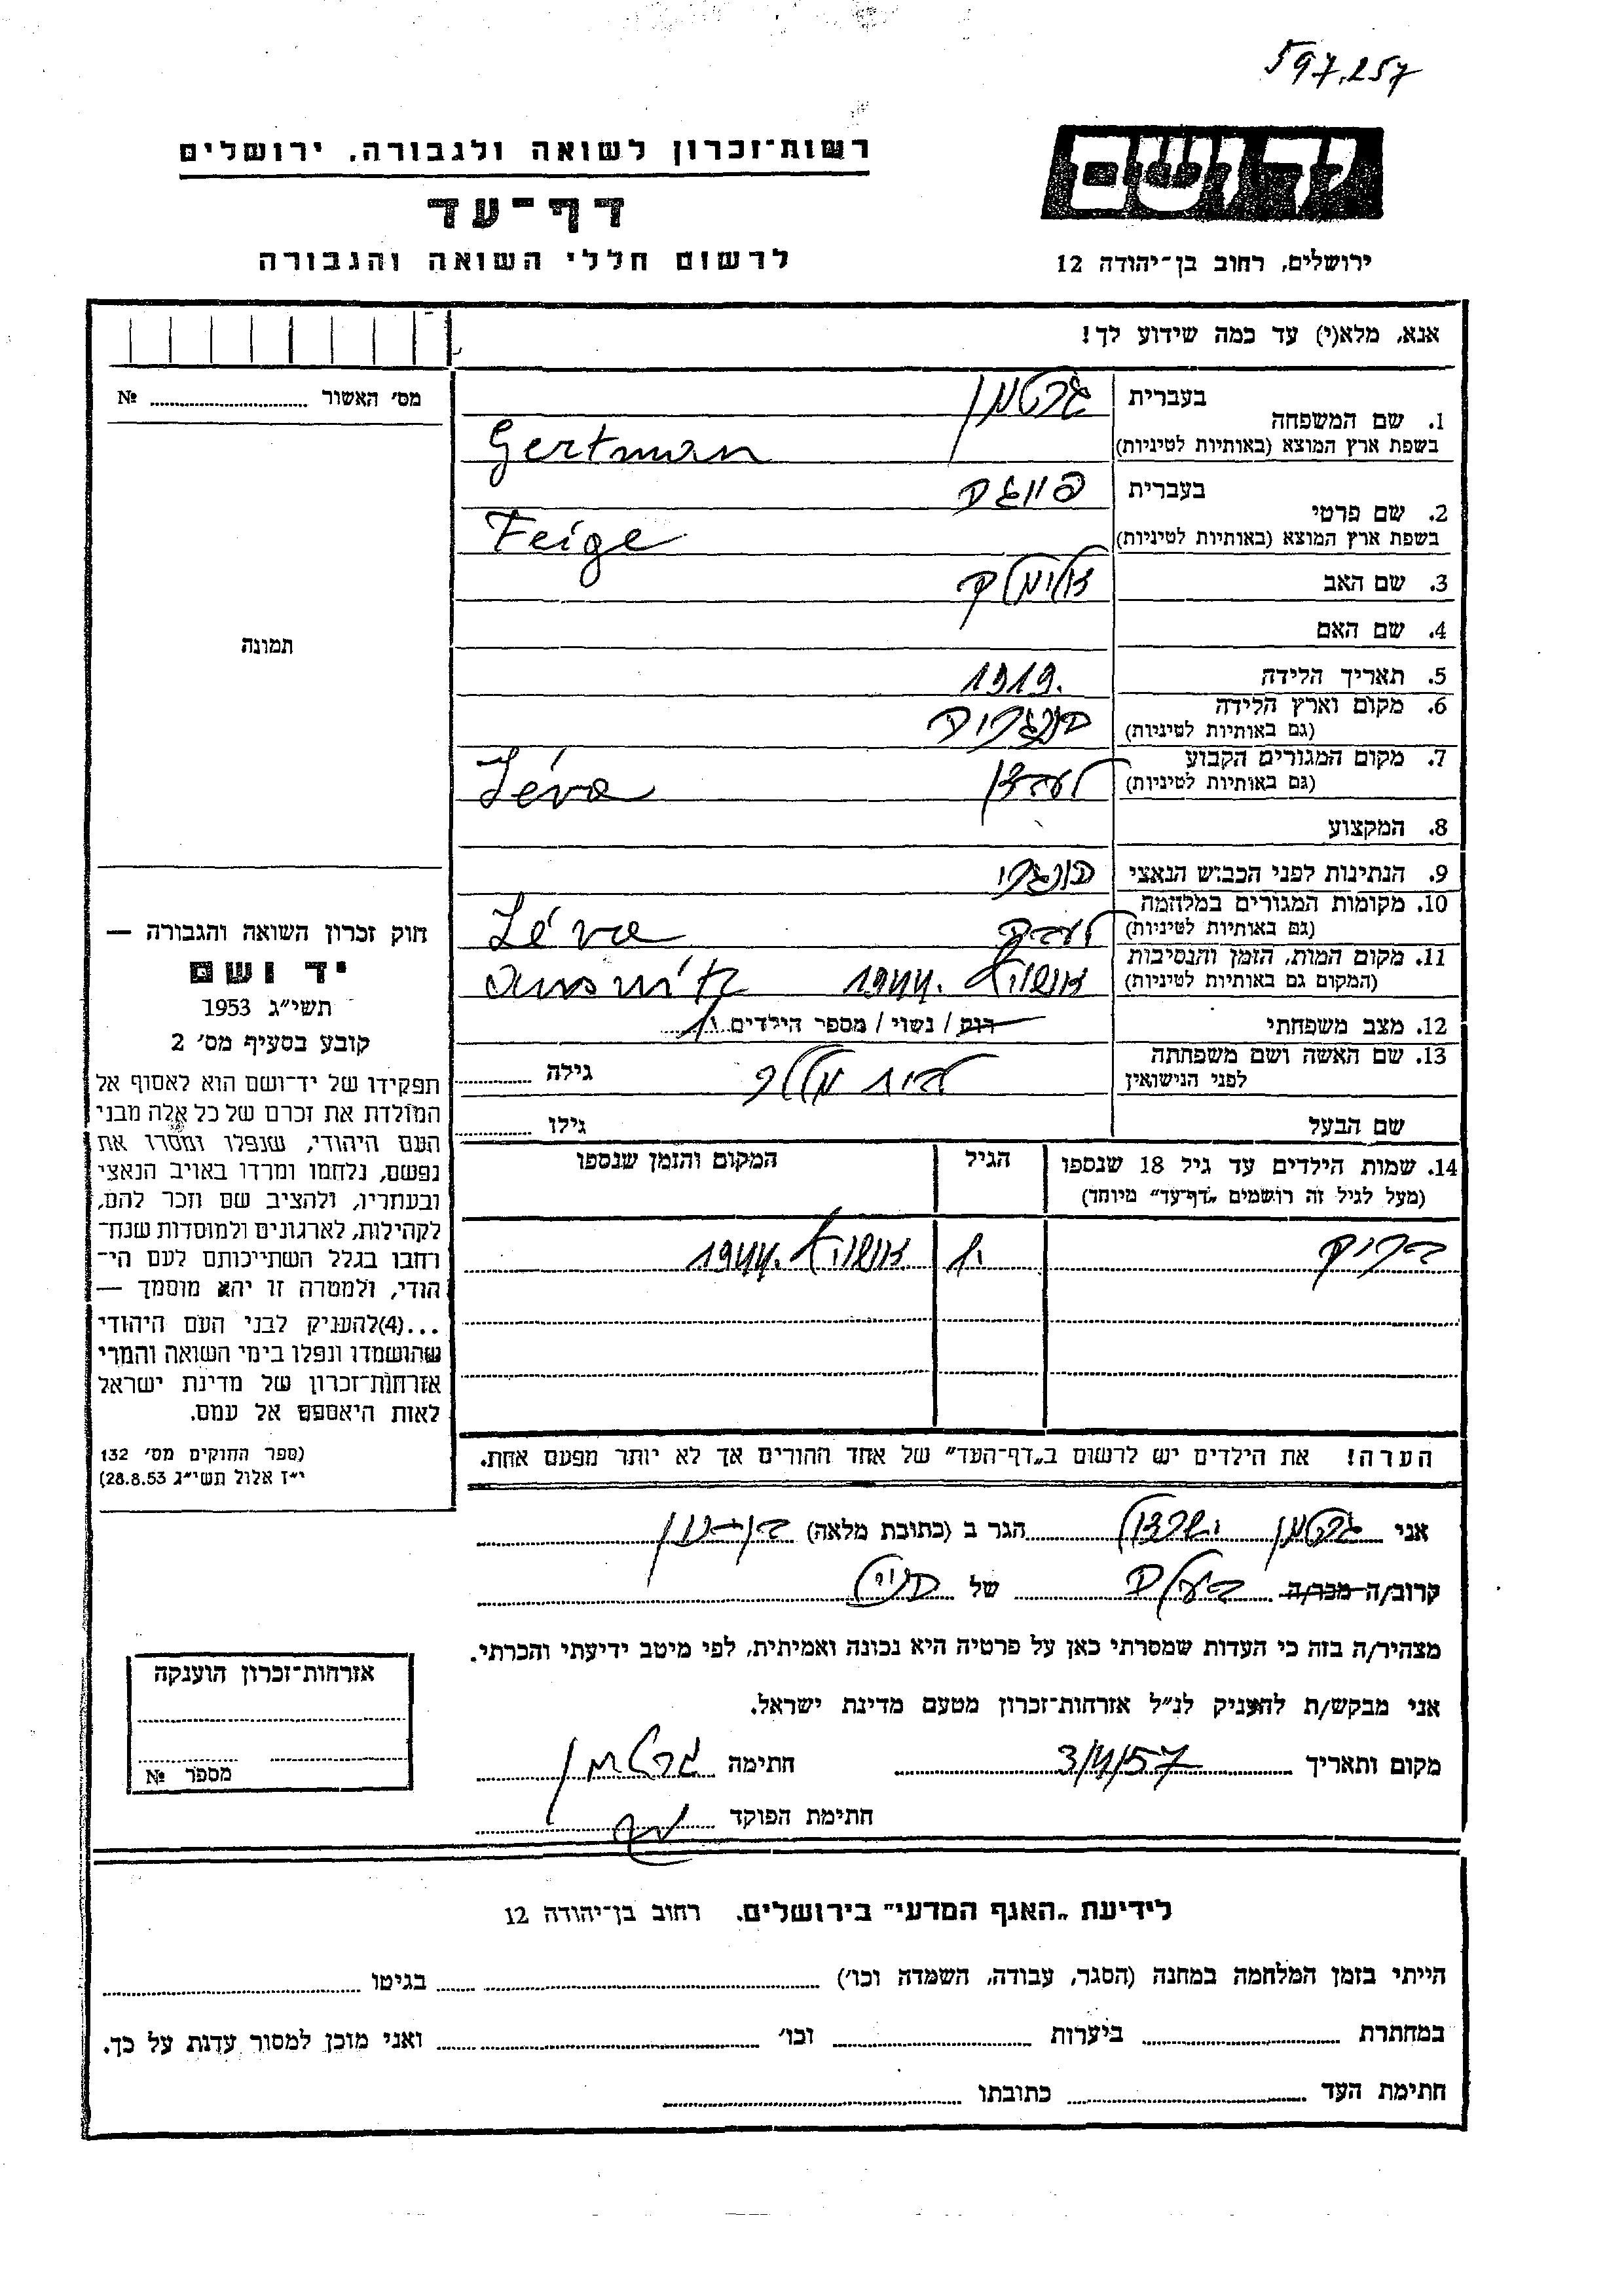 597.257
יד ושם
רשות־זכרון לשואה ולגבורה, ירושלים
דף־עד
לרשום חללי השואה והגבורה
ירושלים, רחוב בן־יהודה 12
אנא, מלא(י) עד כמה שידוע לך!
מס׳ האשור № 
1. שם המשפחה
בעברית גרטמן
בשפת ארץ המוצא (באותיות לטיניות) Gertman
2. שם פרטי
בעברית פייגה
בשפת ארץ המוצא (באותיות לטיניות) Feige
3. שם האב אלימלך
4. שם האם
5. תאריך הלידה 1919.
6. מקום וארץ הלידה
(גם באותיות לטיניות)
7. מקום המגורים הקבוע
(גם באותיות לטיניות) Léva
8. המקצוע
9. הנתינות לפני הכבוש הנאצי הונגרי
10. מקומות המגורים במלחמה
(גם באותיות לטיניות) Léva
11. מקום המות, הזמן והנסיבות
(המקום גם באותיות לטיניות) 1944.
12. מצב משפחתי רוק / נשוי / מספר הילדים 1
13. שם האשה ושם משפחתה
לפני הנישואין גילה
שם הבעל גילו
תמונה
חוק זכרון השואה והגבורה —
יד ושם
תשי״ג 1953
קובע בסעיף מס׳ 2
תפקידו של יד־ושם הוא לאסוף אל
המולדת את זכרם של כל אלה מבני
העם היהודי, שנפלו ומסרו את
נפשם, נלחמו ומרדו באויב הנאצי
ובעוזריו, ולהציב שם וזכר להם,
לקהילות, לארגונים ולמוסדות שנח־
רבו בגלל השתייכותם לעם הי־
הודי, ולמטרה זו יהא מוסמך —
...(4)להעניק לבני העם היהודי
שהושמדו ונפלו בימי השואה והמרי
אזרחות־זכרון של מדינת ישראל
לאות היאספם אל עמם.
(ספר החוקים מס׳ 132
י״ז אלול תשי״ג 28.8.53)
14. שמות הילדים עד גיל 18 שנספו
(מעל לגיל זה רושמים „דף־עד״ מיוחד)
הגיל
המקום והזמן שנספו
ברוך 1944.
הערה! את הילדים יש לרשום ב„דף־העד״ של אחד ההורים אך לא יותר מפעם אחת.
אני גרטמן הגר ב (כתובת מלאה)
קרוב/ה מכר/ה של
מצהיר/ה בזה כי העדות שמסרתי כאן על פרטיה היא נכונה ואמיתית, לפי מיטב ידיעתי והכרתי.
אני מבקש/ת להעניק לנ״ל אזרחות־זכרון מטעם מדינת ישראל.
מקום ותאריך 3/4/57 חתימה גרטמן
חתימת הפוקד
אזרחות־זכרון הוענקה
מספר №
לידיעת „האגף המדעי״ בירושלים. רחוב בן־יהודה 12
הייתי בזמן המלחמה במחנה (הסגר, עבודה, השמדה וכו׳) בגיטו
במחתרת ביערות וכו׳ ואני מוכן למסור עדות על כך.
חתימת העד כתובתו